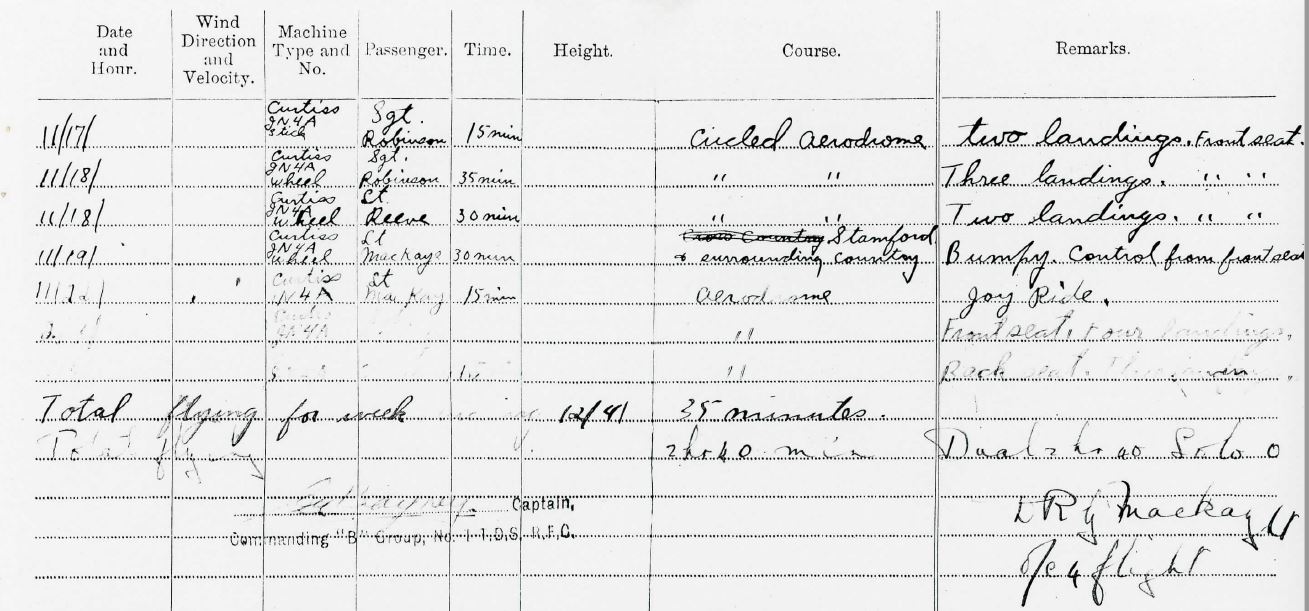 Date and Hour. Wind Direction and Velocity. Machine Type and No. Passenger. Time. Height. Course. Remarks.
11/17/ Curtiss JN4A Stick Sgt. Robinson 15 min Circled Aerodrome two landings. Front seat.
11/18/ Curtiss JN4A Wheel Sgt. Robinson 35 min " " Three landings. " "
11/18/ Curtiss JN4A Wheel Lt. Reeve 30 min " " Two landings. " "
11/19/ Curtiss JN4A Wheel Lt Mackays 30 min Cross Country Stamford & surrounding country Bumpy. Control from front seat
11/22/ Curtiss JN4A Lt MacKay 15 min Aerodrome Joy Ride.
Curtiss JN4A " Front seat. Four landings.
" Back seat.
Total flying for week 12/4/ 35 minutes.
Total flying 2 hr 40 min Dual 2 hr 40 Solo 0
Captain,
Commanding "B" Group, No. 1 T.D.S. R.F.C.
Mackay Lt
O/C 4 flight